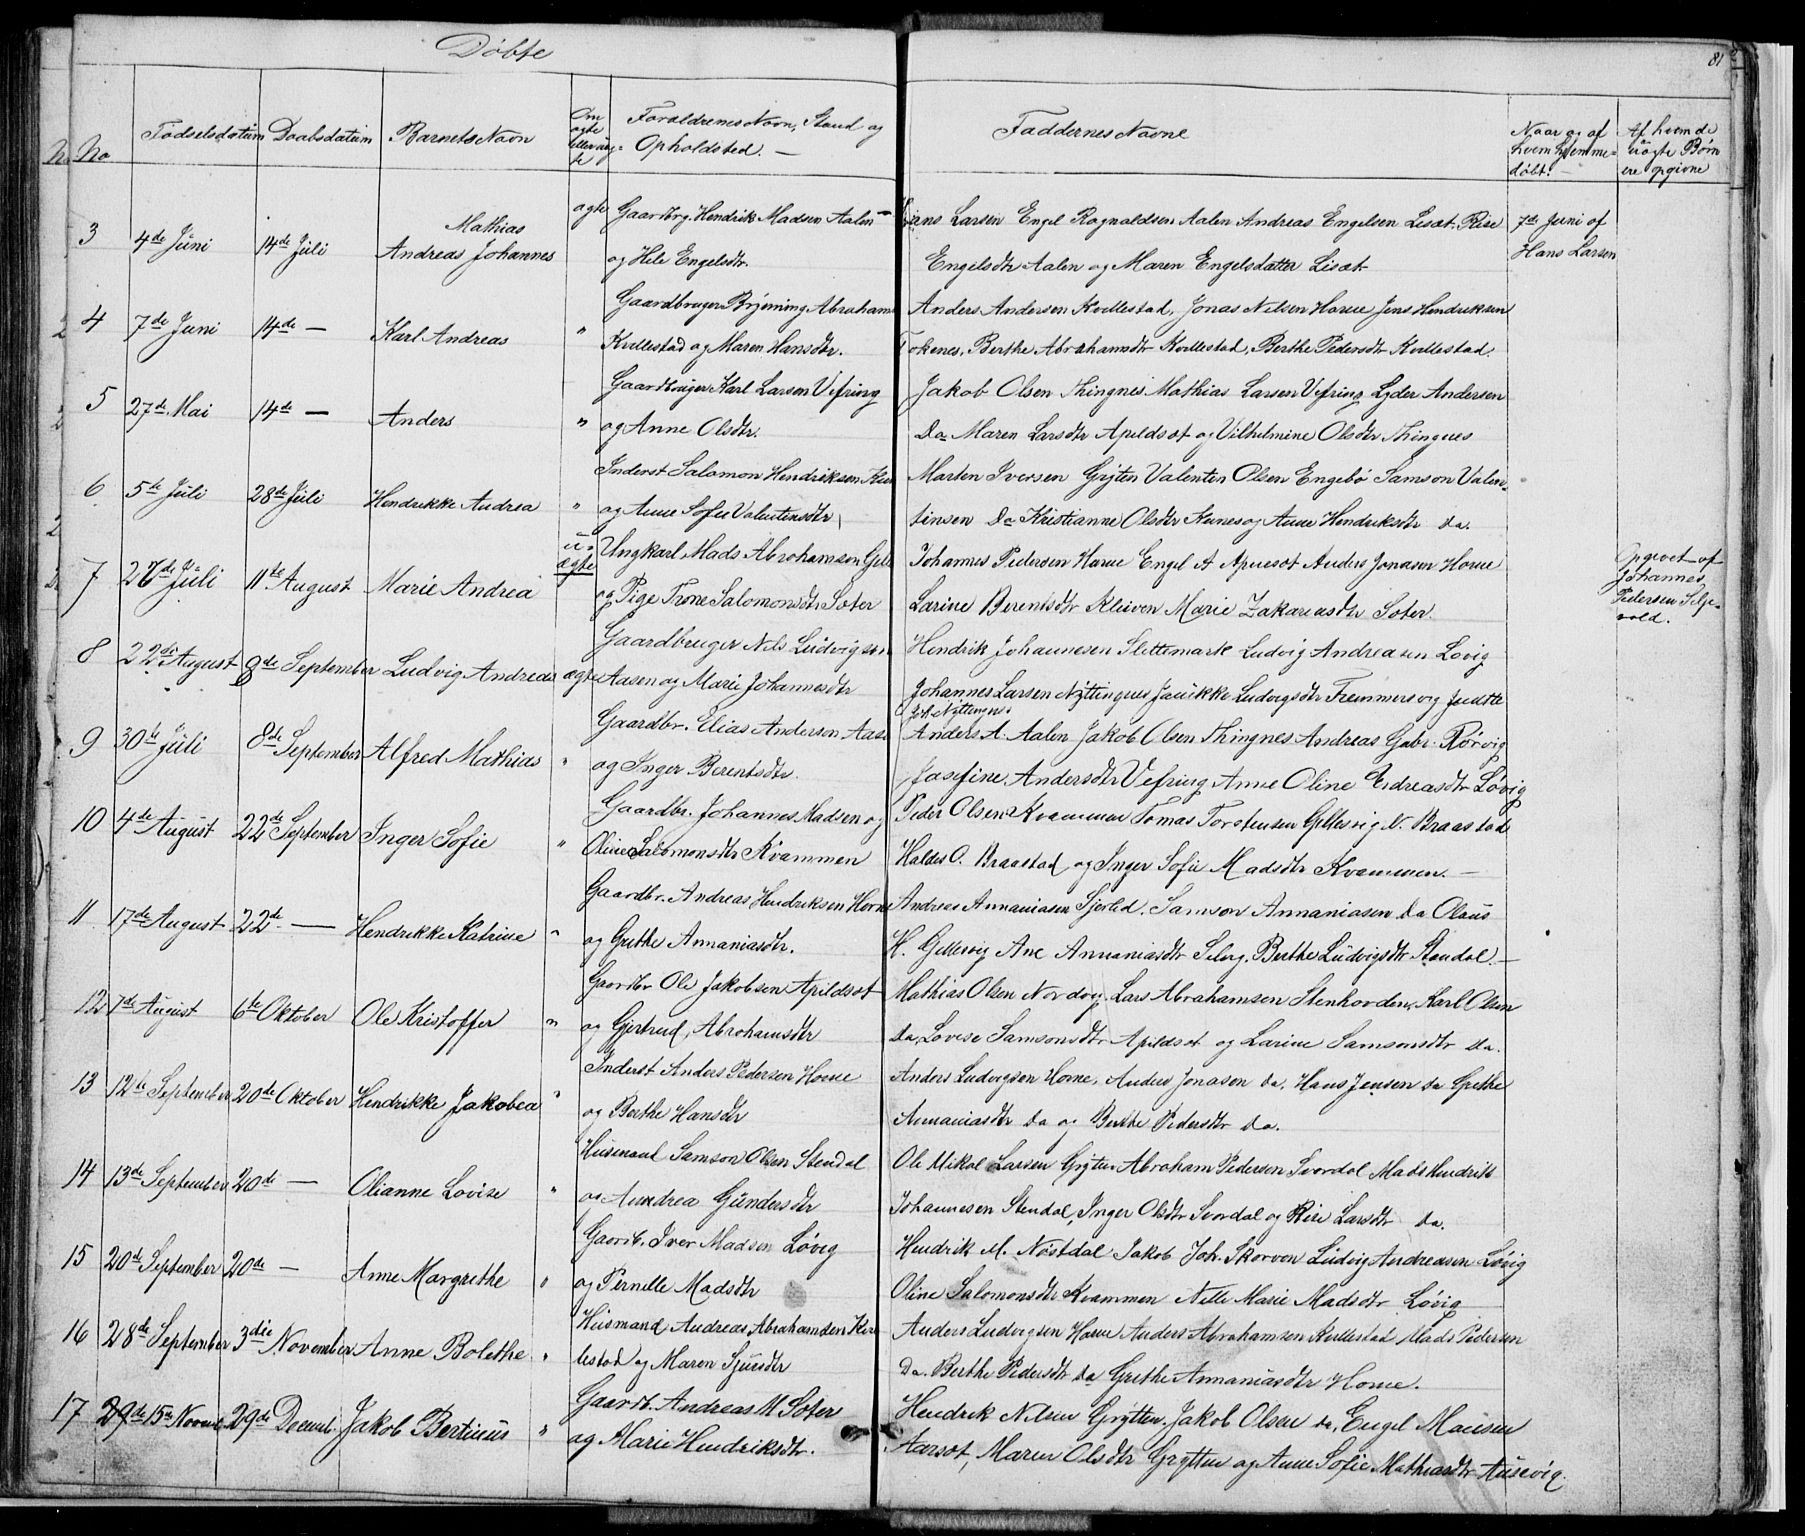 Döbte
81
No Födselsdatum Daabsdatum Barnets Navn Om ægte eller uægte Forældrenes Navn, Stand og Opholdsted. — Faddernes Navne Naar og af hvem hjemmedöbt. Af hvem de uægte Börn ere opgivne
3 4de Juni 14de Juli Mathias Andreas Johannes ægte Gaardbrg. Hendrik Madsen Aalen Hans Larsen Engel Ragnaldsen Aalen Andreas Engelsen Lisæt. Rise 7de Juni af
og Hele Engelsdtr. Engelsdtr Aalen og Maren Engelsdatter Lisæt Hans Larsen
4 7de Juni 14de — Karl Andreas " Gaardbruger Brynning Abraham Anders Andersen Kvellestad, Jonas Nilsen Horne Jens Hendriksen
Kvellestad og Maren Hansdtr. Tokenes. Berthe Abrahamsdtr Kvellestad, Berthe Pedersdtr Kvellestad.
5 27de Mai 14de — Anders " Gaardbruger Karl Larsen Vefring Jakob Olsen Thingnes Mathias Larsen Vefring Lyder Andersen
og Anne Olsdtr. Do Maren Larsdtr Apildsæt og Vilhelmine Olsdtr Thingnes
6 5te Juli 28de Juli Hendrikke Andrea " Inderst Salomon Hendriksen Marten Iversen Gryten Valenten Olsen Engebö Samson Valen-
og Anne Sofie Valentensdtr tinsen Do Kristianne Olsdtr og Anne Hendriksdtr do.
7 26de Juli 11te August Marie Andrea uægte Ungkarl Mads Abrahamson Johannes Pedersen Horne Engel A Apneset Anders Jonasen Horne Opgivet af Johannes Pedersen Seljevold.
og Pige Trone Salomonsdtr Soter Larine Berentsdtr Kleiven Marie Zakariasdtr Soter.
8 22de August 8de September Ludvig Andreas ægte Gaardbruger Nils Ludvigsen Hendrik Johannesen Slettemark Ludvig Andreasen Lovig
Aasen og Marie Johannesdtr Johannes Larsen Nyttingnes Ludvigsdtr Fremmersvig Judite
Joh. Nyttingnes
9 30te Juli 8de September Alfred Mathias " Gaardbr. Elias Anderson Aase Anders A. Aalen Jakob Olsen Thingnes Andreas Gabr. Rörvig
og Inger Berentsdtr. Josefine Andersdtr Vefring Anne Oline Endreasdtr Lövig
10 4de August 22de September Inger Sofie " Gaardbr. Johannes Madsen og Peder Olsen Kvammen Tomas Torstensen Gillesvig N. Braastad
Oline Salomonsdtr Kvammen O. Braastad og Inger Sofie Madsdtr Kvammen. —
11 17de August 22de — Hendrikke Katrine " Gaardbr. Andreas Hendriksen Horne Andreas Annaniasen Samson Annaniasen Do Olaus
og Grethe Annaniasdtr. H. Gellesvig Ane Annaniasdtr Berthe Ludvigsdtr Standal. —
12 7de August 6te Oktober Ole Kristoffer " Gaardbr Ole Jakobsen Apildsæt Mathias Olsen Nordvig Lars Abrahamsen Stenhovden, Karl Olsen
og Gjertrud Abrahamsdtr Do, Lovise Samsonsdtr Apildsæt og Larine Samsonsdtr do.
13 12te September 20de Oktober Hendrikke Jakobea " Inderst Anders Pedersen Horne Anders Ludvigsen Horne, Anders Jonasen do. Hans Jensen do Grethe
og Berthe Hansdtr Annaniasdtr do og Berthe Pedersdtr do.
14 13de September 20de — Olianne Lovise " Husmand Samson Olsen Stendal Ole Mikal Larsen Gryten Abraham Pedersen Svardal Mads Hendrik
og Anndrea Gundersdtr Johannesen Stendal, Inger Olsdtr Svordal og Rise Larsdtr do.
15 20de September 20de — Anne Margrethe " Gaardb. Iver Madsen Lövig Hendrik M. Nöstdal Jakob Joh. Skorven Ludvig Andreasen Lövig
og Pernelle Madsdtr Oline Salomonsdtr Kvammen Nelle Marie Madsdtr Lövig
16 28de September 3die November Anne Bolethe " Husmand Andreas Abrahamsen Kvel Anders Ludvigsen Horne Anders Abrahamsen Kvellestad Mads Pedersen
lestad og Maren Sjursdtr Do. Berthe Pedersdtr do Grethe Annaniasdtr Horne.
17 29de 15de Novmb. 29de Decmb. Jakob Bertinus " Gaardb. Andreas M Soter Hendrik Nilsen Grytten. Jakob Olsen do, Engel Monsen
og Marie Hendriksdtr. Aarsæt, Maren Olsdtr Grytten og Anne Sofie Mathiasdtr Ausevig.